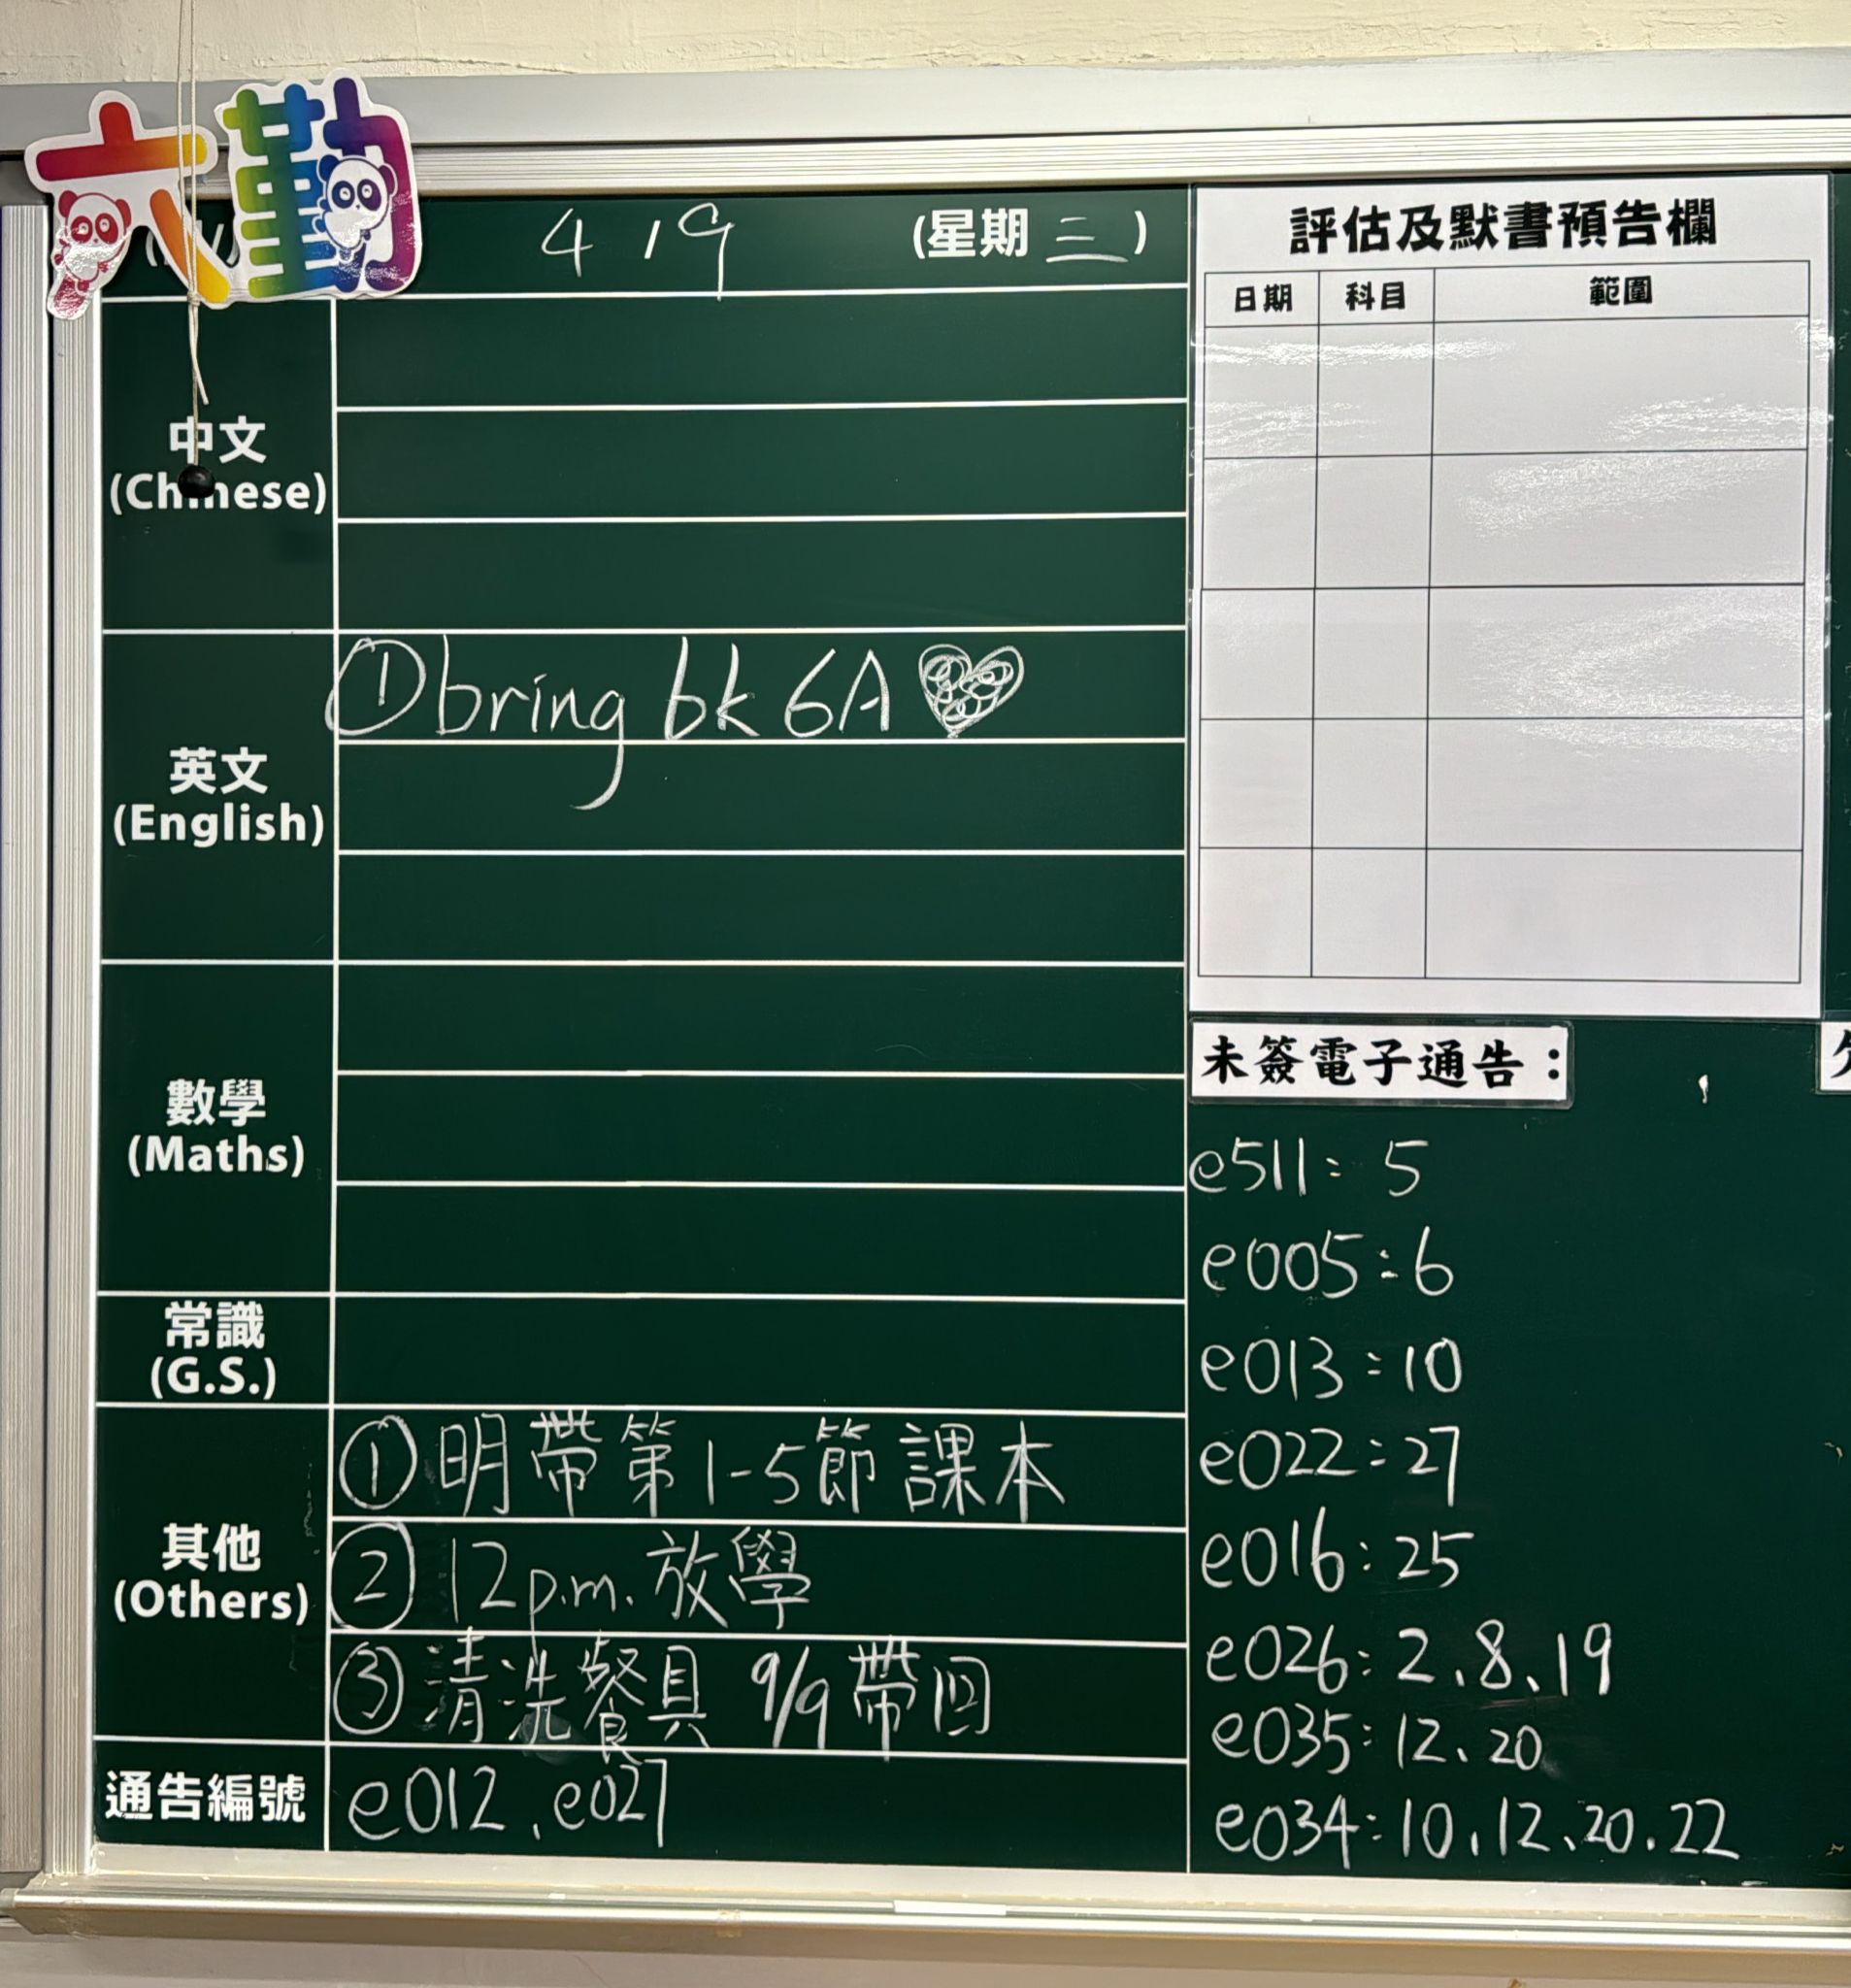 六勤
4 / 9 (星期 三 )
中文
(Chinese)
英文
(English)
①bring bk 6A
數學
(Maths)
常識
(G.S.)
其他
(Others)
① 明帶第1-5節課本
② 12p.m. 放學
③ 清洗餐具 9/9 帶回
通告編號
e012、e027
評估及默書預告欄
日期 科目 範圍
未簽電子通告：
e511: 5
e005:6
e013:10
e022:27
e016:25
e026:2、8、19
e035:12、20
e034:10、12、20、22